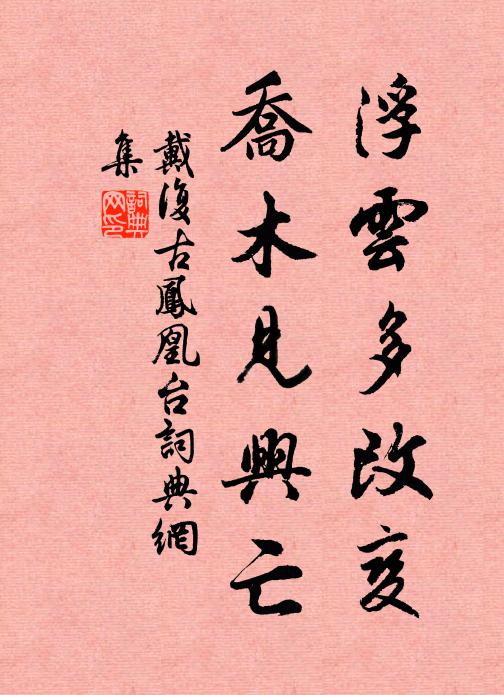 浮雲多改变
喬木見興亡
戴復古鳳凰台詞典網
集
詞典网印